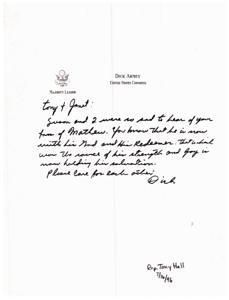 DICK ARMEY
UNITED STATES CONGRESS
MAJORITY LEADER
Tony & Janet:
Susan and I were so sad to hear of your
loss of Mathew. You know that he is now
with his God and His Redeemer. That which
was the source of his strength and joy is
now holding his salvation.
Please care for each other.
Dick
Rep. Tony Hall
7/16/96